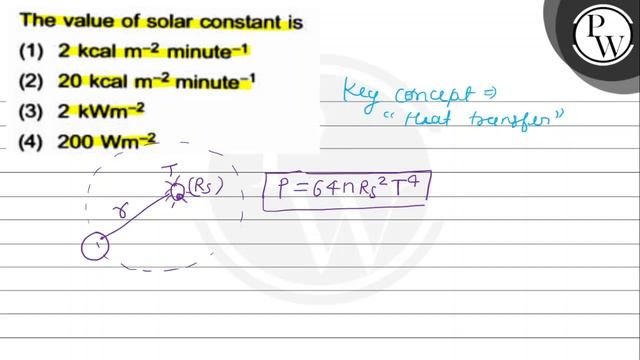 The value of solar constant is
(1) 2 kcal m⁻² minute⁻¹
(2) 20 kcal m⁻² minute⁻¹
(3) 2 kWm⁻²
(4) 200 Wm⁻²
P
W
Key concept ⇒
"Heat transfer"
T
(Rs)
r
P = σ4πRs²T⁴